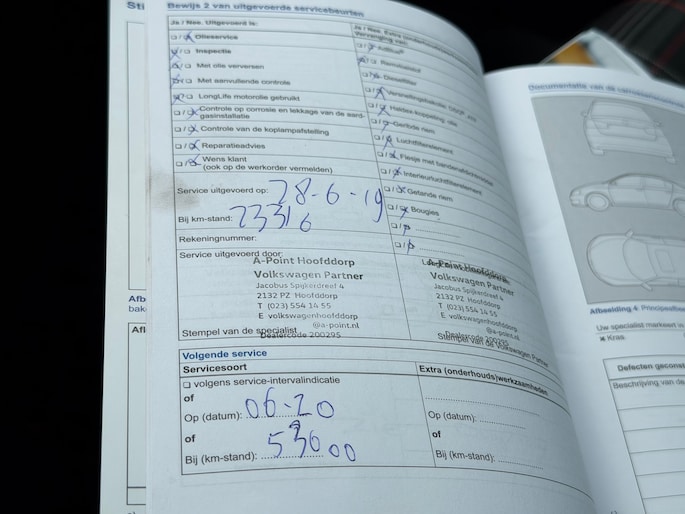 Sti
Bewijs 2 van uitgevoerde servicebeurten
Ja / Nee. Uitgevoerd is:
Olieservice
Inspectie
Met olie verversen
Met aanvullende controle
LongLife motorolie gebruikt
Controle op corrosie en lekkage van de aard-
gasinstallatie
Controle van de koplampafstelling
Reparatieadvies
Wens klant
(ook op de werkorder vermelden)
Service uitgevoerd op: 28-6-19
Bij km-stand: 23316
Rekeningnummer:
Service uitgevoerd door:
A-Point Hoofddorp
Volkswagen Partner
Jacobus Spijkerdreef 4
2132 PZ Hoofddorp
T (023) 554 14 55
E volkswagenhoofddorp
@a-point.nl
Dealercode 200295
Stempel van de specialist
Ja / Nee. Extra (onderhouds)
Vervanging van:
AdBlue®
Remvloeistof
Dieselfilter
Haldex-koppeling olie
Getande riem
Luchtfilterelement
Flesje met bandenafdichtmiddel
Interieurluchtfilterelement
Getande riem
Bougies
A-Point Hoofddorp
Volkswagen Partner
Jacobus Spijkerdreef 4
2132 PZ Hoofddorp
T (023) 554 14 55
E volkswagenhoofddorp
@a-point.nl
Dealercode 200295
Stempel van de Volkswagen Partner
Volgende service
Servicesoort
volgens service-intervalindicatie
of
Op (datum): 06-20
of
Bij (km-stand): 53000
Extra (onderhouds)werkzaamheden
Op (datum):
of
Bij (km-stand):
Afb
bak
Afl
Documentatie van de
Afbeelding 4
Uw specialist markeert
Kras.
Defecten geconst
Beschrijving van de